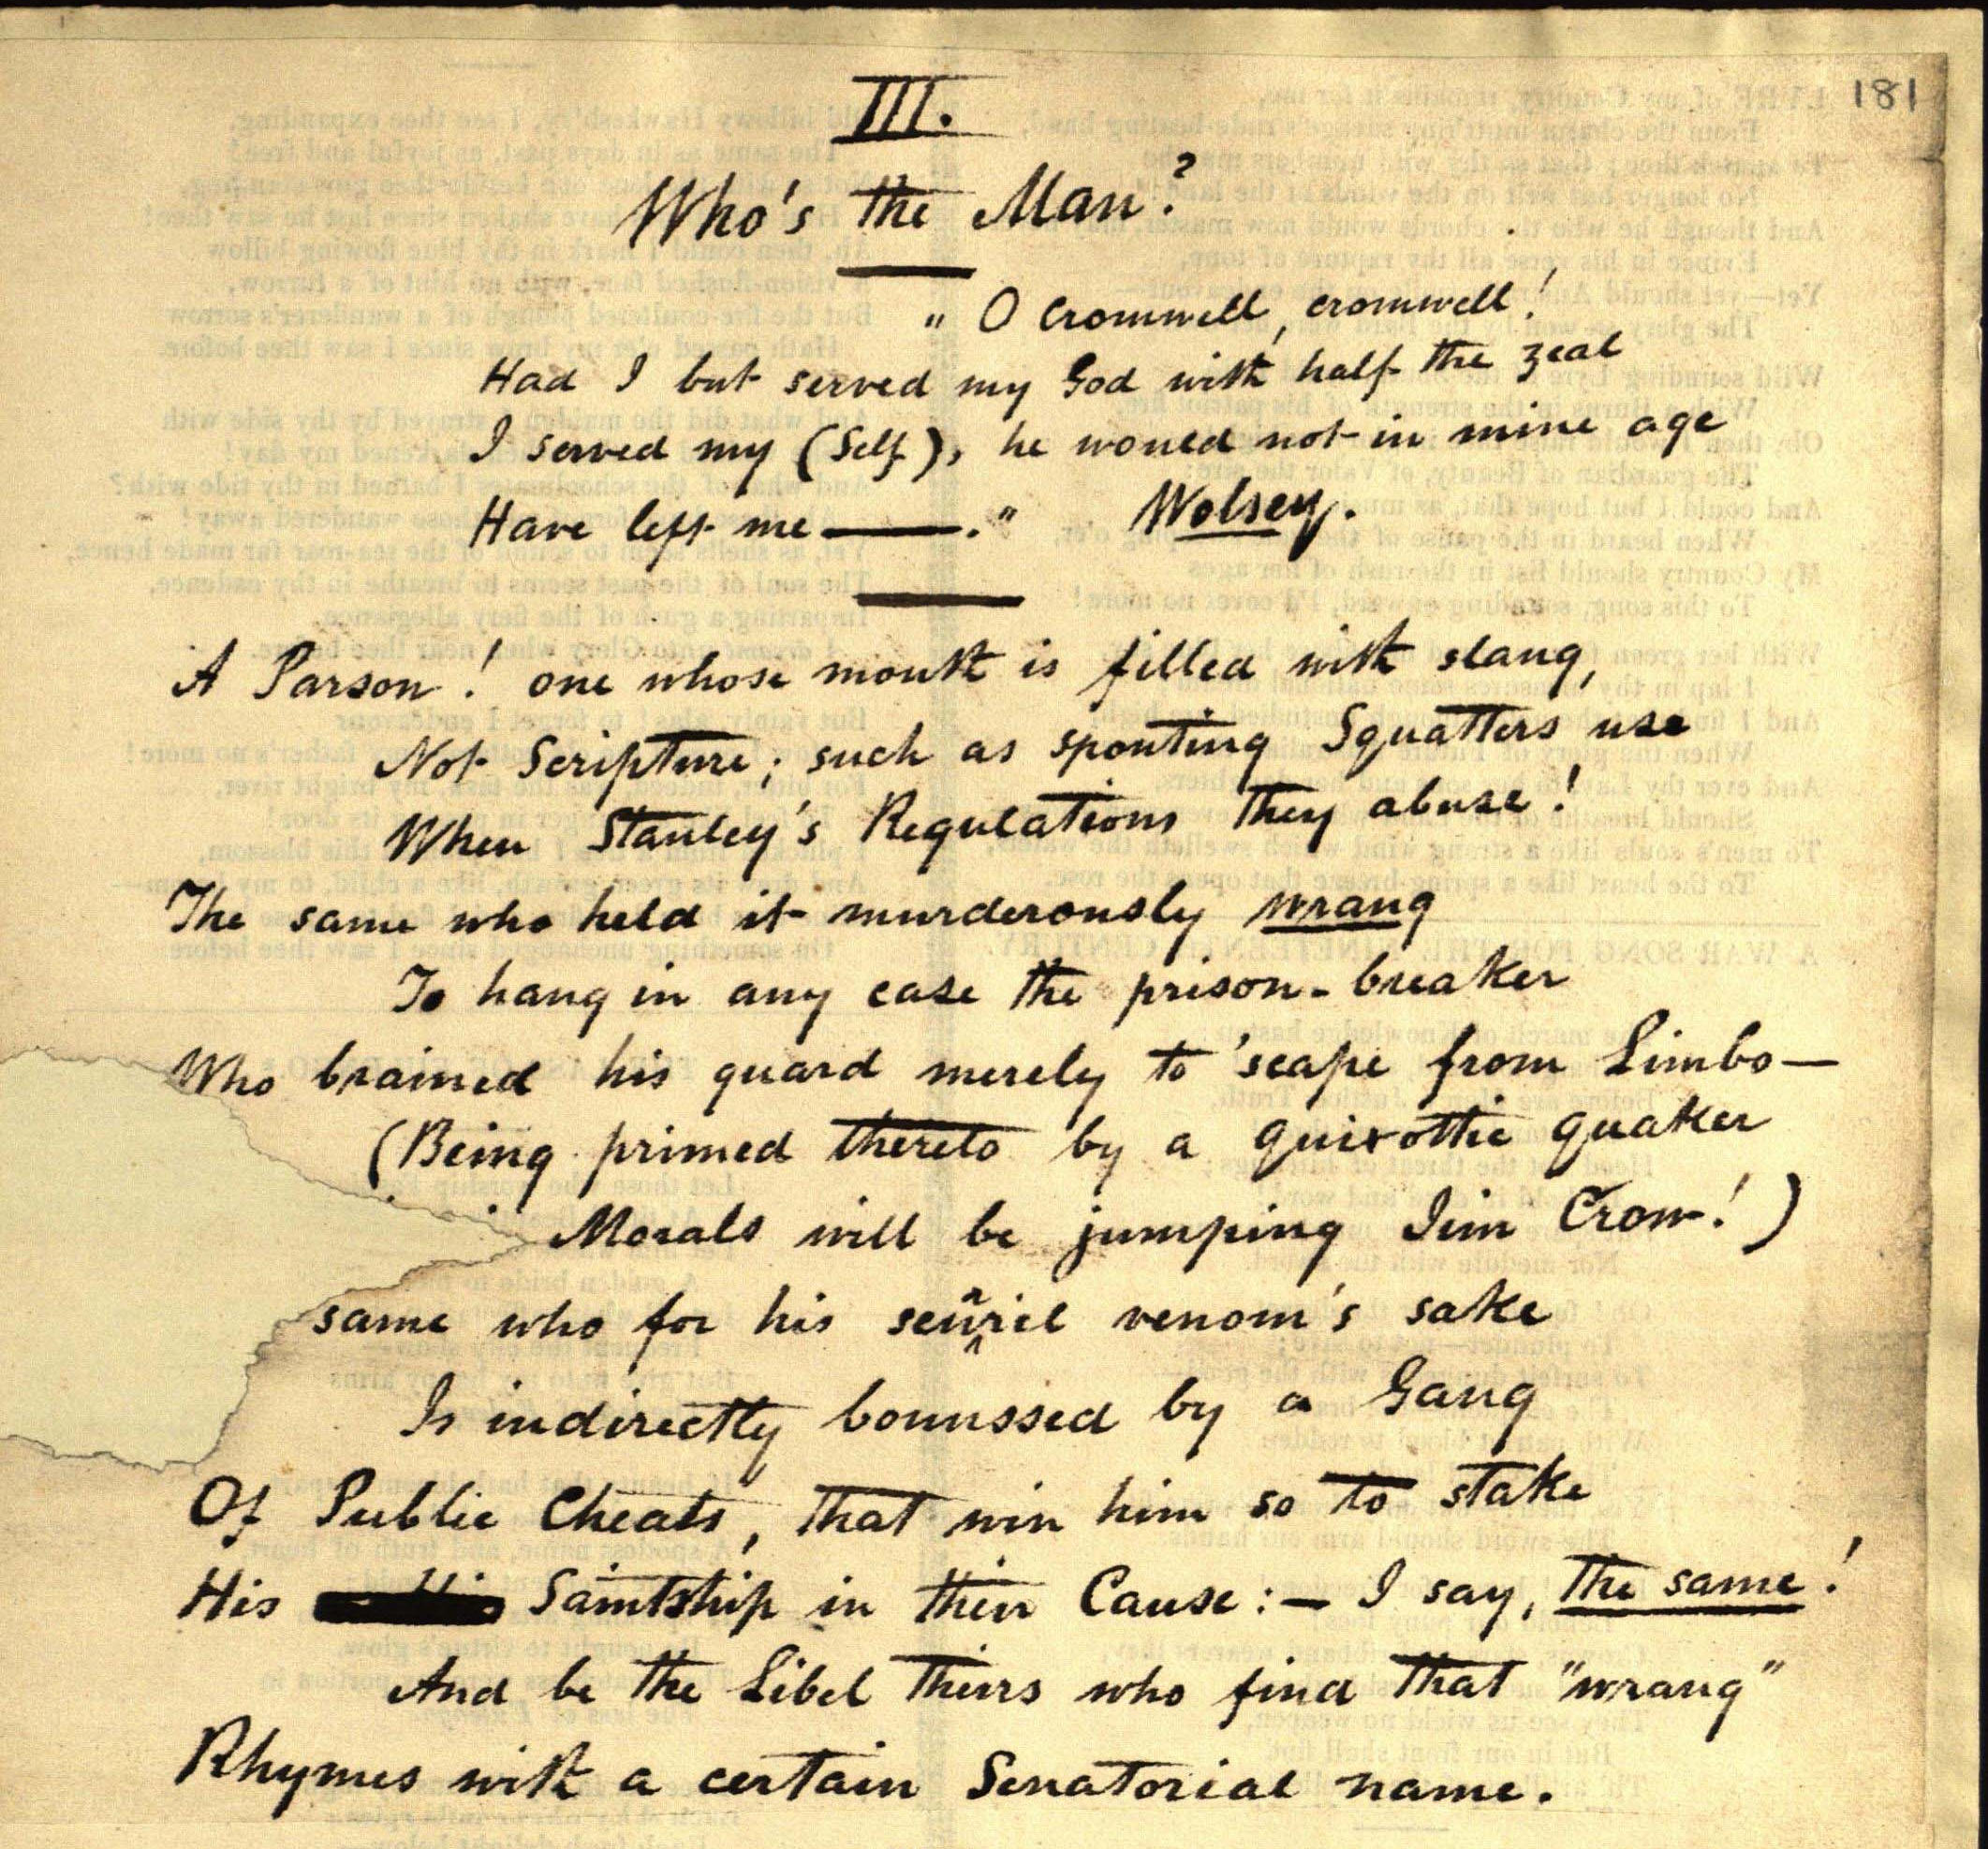 181
III.
Who's the Man?
" O Cromwell, cromwell!
Had I but served my God with half the zeal
I served my (Self), he would not in mine age
Have left me ———."  Wolsey.
A Parson! one whose mouth is filled with slang,
Not Scripture; such as spouting Squatters use
When Stanley's Regulations they abuse!
The same who held it murderously wrang
To hang in any case the prison-breaker
Who brained his guard merely to 'scape from Limbo—
(Being primed thereto by a quixottic quaker
Morals will be jumping Jim Crow!)
same who for his scurril venom's sake
Is indirectly bonussed by a Gang
Of Public Cheats, that win him so to stake
His Saintship in their Cause:— I say, the same!
And be the Libel theirs who find that "wrang"
Rhymes with a certain Senatorial name.